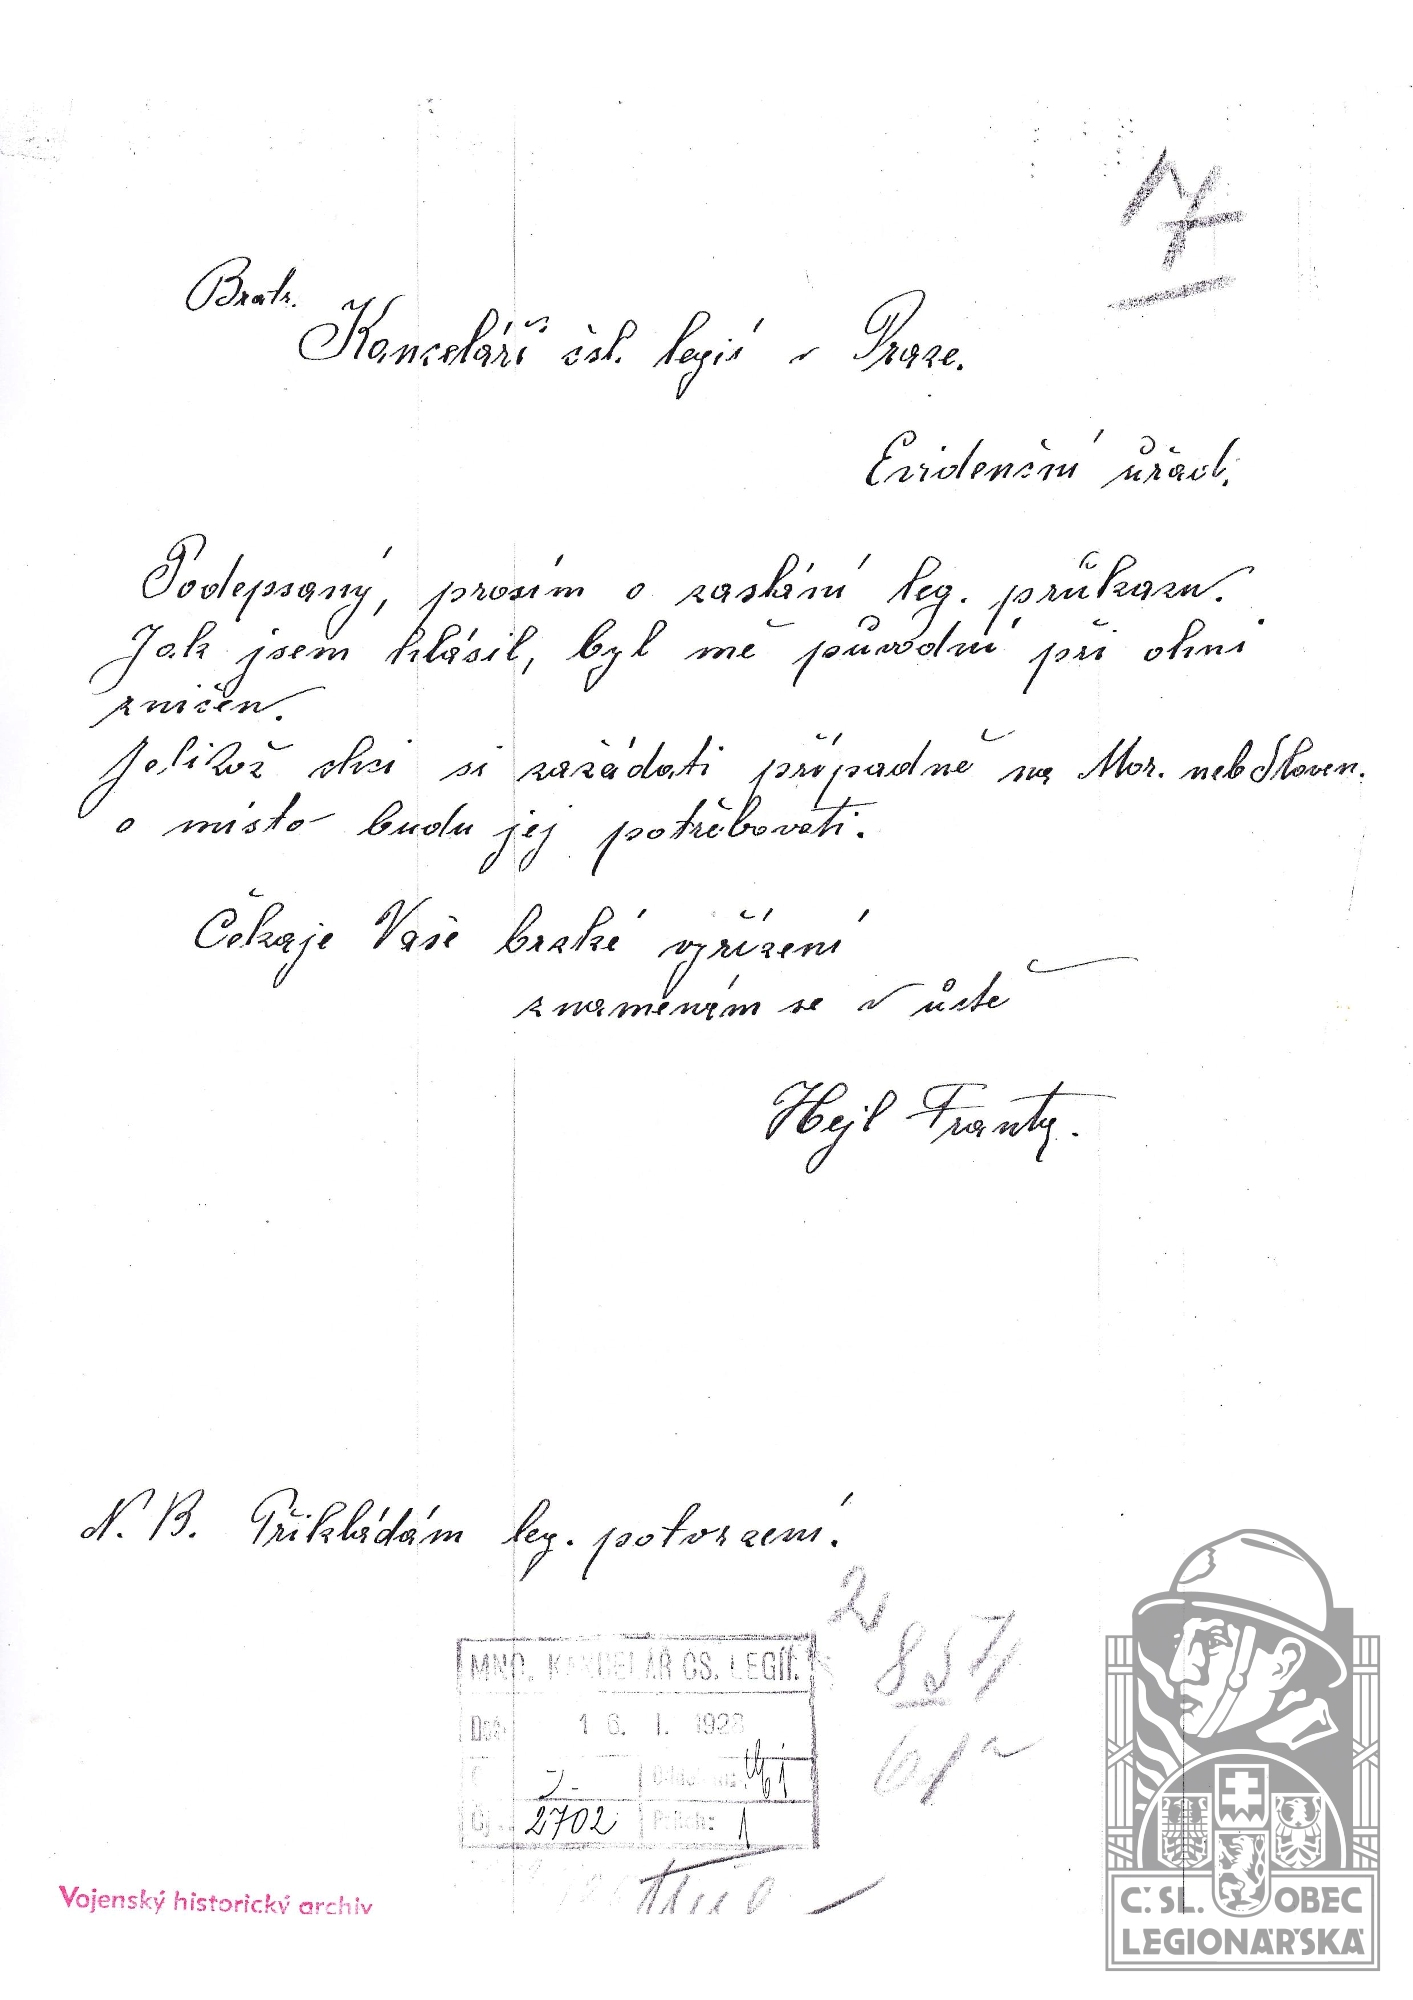 17
Bratr.
Kanceláři čsl. legií v Praze.
Evidenční úřad.
Podepsaný, prosím o zaslání leg. průkazu.
Jak jsem hlásil, byl mě původní při ohni
zničen.
Jelikož chci si zažádati případně na Mor. neb Sloven.
o místo budu jej potřebovati.
Čekaje Vaše brzké vyřízení
znamenám se v úctě
Hejl Frant.
N. B. Přikládám leg. potvrzení.
MNO. KANCELÁŘ ČS. LEGIÍ.
16. I. 1928
2702
1
857
61a
Vojenský historický archiv
Č.SL. OBEC
LEGIONÁŘSKÁ